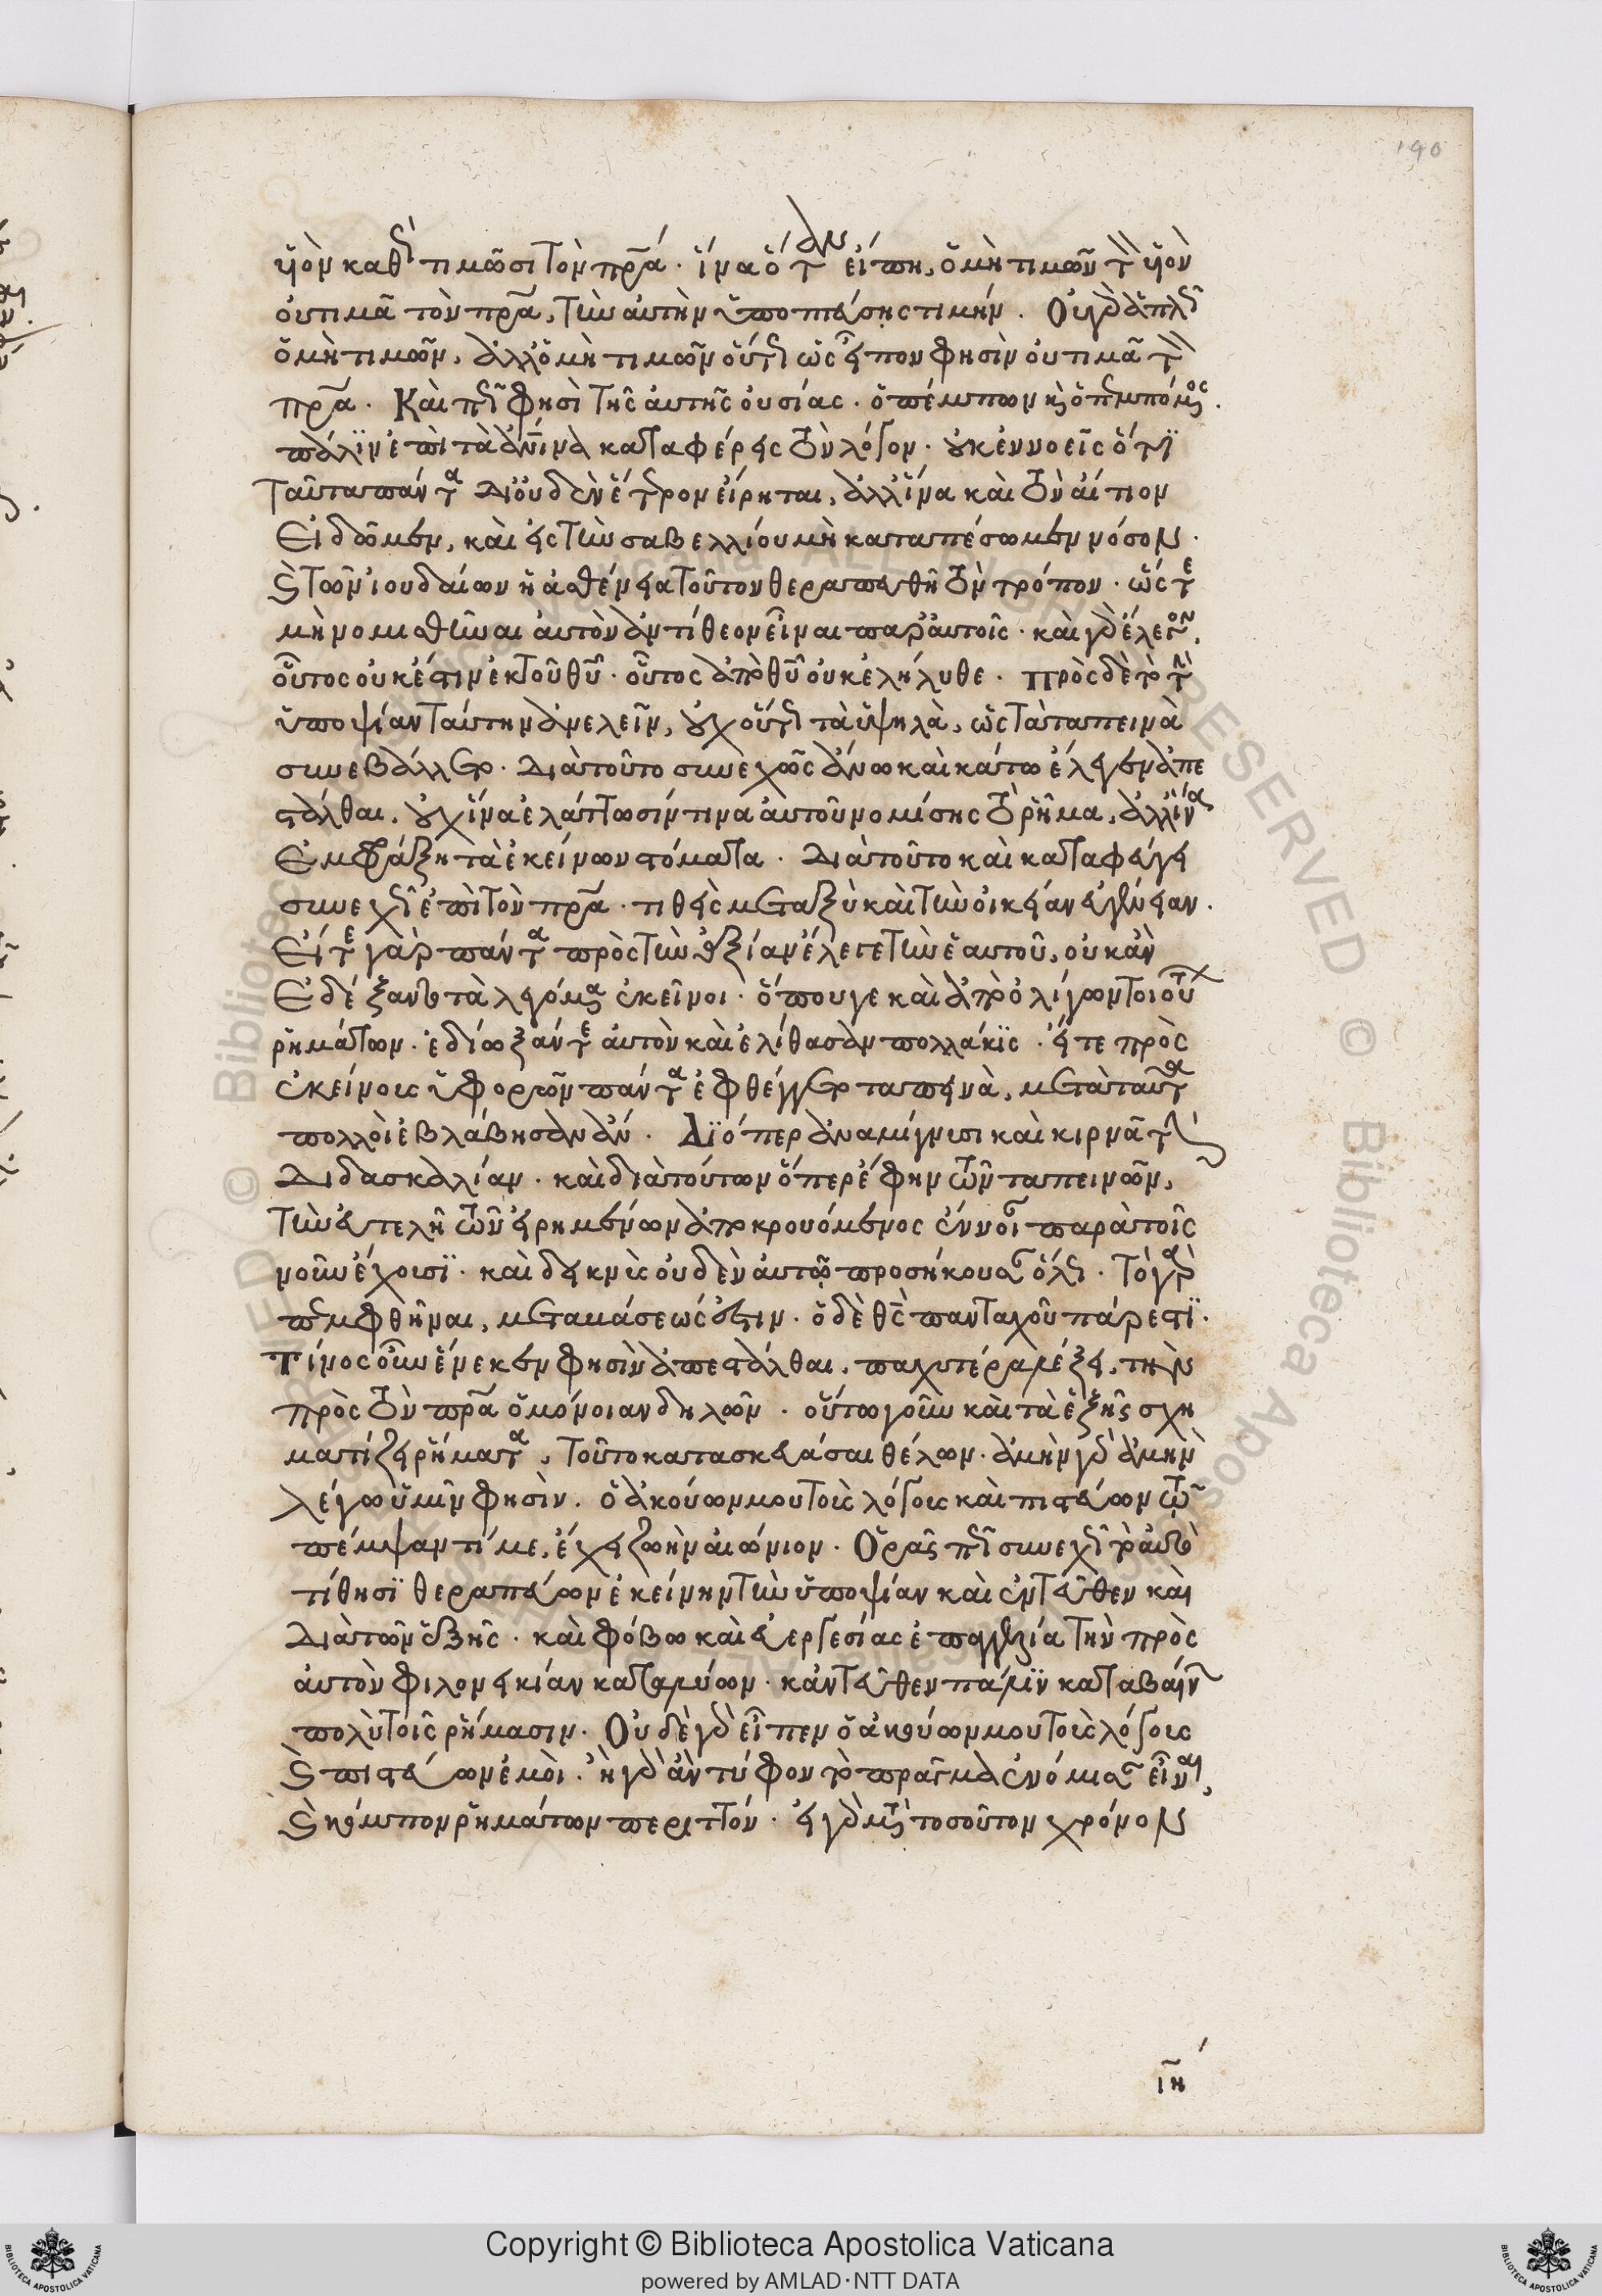 190
υἱὸν καθὼς τιμῶσι τὸν πρα. ἵνα ὅταν εἴπη, ὁ μὴ τιμῶν τὸν υἱὸν
οὐ τιμᾶ τὸν πρα, τὴν αὐτὴν ὑποπτεύσης τιμήν. Οὐ γὰρ ἁπλῶς
ὁ μὴ τιμῶν, ἀλλ' ὁ μὴ τιμῶν οὕτως ὡς εἶπον φησὶν οὐ τιμᾶ τὸν
πρα. Καὶ πῶς φησὶ τῆς αὐτῆς οὐσίας. ὁ πέμπων καὶ ὁ πεμπόμενος.
πάλιν ἐπὶ τὰ ἀνινα καταφέρεις τὸν λόγον. οὐκ ἐννοεῖς ὅτι
ταῦτα πάντα δι' οὐδὲν ἕτερον εἴρηται, ἀλλ' ἵνα καὶ τὸν αἴτιον
εἰδῶμεν, καὶ εἰς τὴν σαβελλίου μὴ καταπέσωμεν νόσον.
καὶ τῶν ἰουδαίων ἡ ἀσθένεια τοῦτον θεραπευθῆ τὸν τρόπον. ὥστε
μὴ νομισθῆναι αὐτὸν ἀντίθεον εἶναι παρ' αὐτοῖς. καὶ γὰρ ἔλεγον,
οὗτος οὐκ ἔστιν ἐκ τοῦ θυ. οὗτος ἀπὸ θυ οὐκ ἐλήλυθε. πρὸς δὲ τὸ τὴν
ὑποψίαν ταύτην ἀνελεῖν, οὐχ οὕτως τὰ ὑψηλὰ, ὡς τὰ ταπεινὰ
συνεβάλλετο. Διὰ τοῦτο συνεχῶς ἄνω καὶ κάτω ἔλεγεν ἀπε
στάλθαι. οὐχ ἵνα ἐλάττωσίν τινα αὐτοῦ νομίσης τὸ ῥῆμα, ἀλλ' ἵνα
ἐμφράξη τὰ ἐκείνων στόματα. Διὰ τοῦτο καὶ καταφεύγει
συνεχῶς ἐπὶ τὸν πρα. τιθεὶς μεταξὺ καὶ τὴν οἰκείαν αὐθεντίαν.
Εἴτε γὰρ πάντα πρὸς τὴν ἀξίαν ἔλεγε τὴν ἑαυτοῦ, οὐκ ἂν
ἐδέξαντο τὰ λεγόμενα ἐκεῖνοι. ὅπου γε καὶ ἀπὸ ὀλίγων τοιούτων
ῥημάτων. ἐδίωξάν τε αὐτὸν καὶ ἐλίθασαν πολλάκις. εἴτε πρὸς
ἐκείνοις ὑφορῶν πάντα ἐφθέγγετο ταπεινὰ, μετὰ ταῦτα
πολλοὶ ἐβλάβησαν ἄν. Διόπερ ἀναμίγνυσι καὶ κιρνᾶ τὴν
διδασκαλίαν. καὶ διὰ τούτων ὅπερ ἔφην τῶν ταπεινῶν,
τὴν εὐτελῆ τῶν εἰρημένων ἀποκρουόμενος ἔννοιαν παρὰ τοῖς
νοῦν ἔχουσι. καὶ δεικνὺς οὐδὲν αὐτῶ προσήκουσαν ὅλως. Τὸ γὰρ
πεμφθῆναι, μεταβάσεώς ἐστιν. ὁ δὲ θς πανταχοῦ πάρεστι.
Τίνος οὖν ἕνεκεν φησὶν ἀπεστάλθαι. παχυτέρα λέξει, τὴν
πρὸς τὸν πρα ὁμόνοιαν δηλῶν. οὕτω γοῦν καὶ τὰ ἑξῆς σχη
ματίζει ῥήματα, τοῦτο κατασκευάσαι θέλων. ἀμὴν γὰρ ἀμὴν
λέγω ὑμῖν φησὶν. ὁ ἀκούων μου τοὺς λόγους καὶ πιστεύων τῶ
πέμψαντί με, ἔχει ζωὴν αἰώνιον. Ὁρᾶς πῶς συνεχῶς τὸ αὐτὸ
τίθησι θεραπεύων ἐκείνην τὴν ὑποψίαν καὶ ἐντεῦθεν καὶ
διὰ τῶν ἑξῆς. καὶ φόβω καὶ εὐεργεσίας ἐπαγγελία τὴν πρὸς
αὐτὸν φιλονεικίαν καταλύων. κἀντεῦθεν πάλιν καταβαίνων
πολὺ τοῖς ῥήμασιν. Οὐδὲ γὰρ εἶπεν ὁ ἀκούων μου τοὺς λόγους
καὶ πιστεύων ἐμοὶ. ἦ γὰρ ἂν τύφον τὸ πρᾶγμα ἐνόμισαν εἶναι,
καὶ κόμπον ῥημάτων περιττόν. εἰ γὰρ μετὰ τοσοῦτον χρόνον
ιη
Copyright © Biblioteca Apostolica Vaticana
powered by AMLAD·NTT DATA